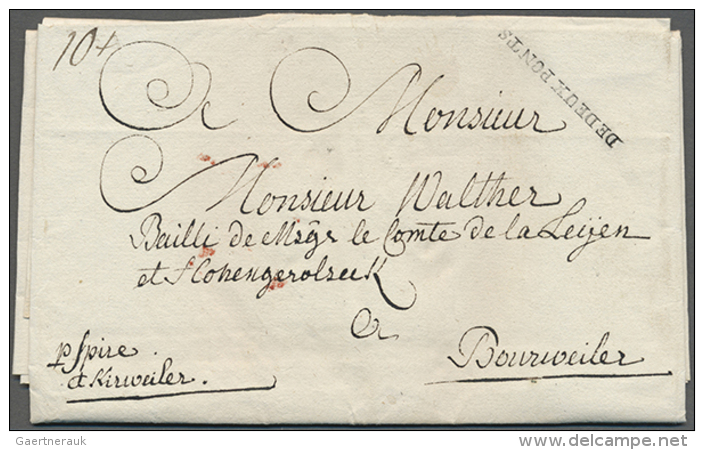 10x
DE DEUX PONTS
A Monsieur
Monsieur Walther
Bailli de Msgr le Comte de la Leÿen
et Hohengerolseck
à
Bourweiler
p Spire
et Kirweiler.
Gaertnerauk
© delcampe.net